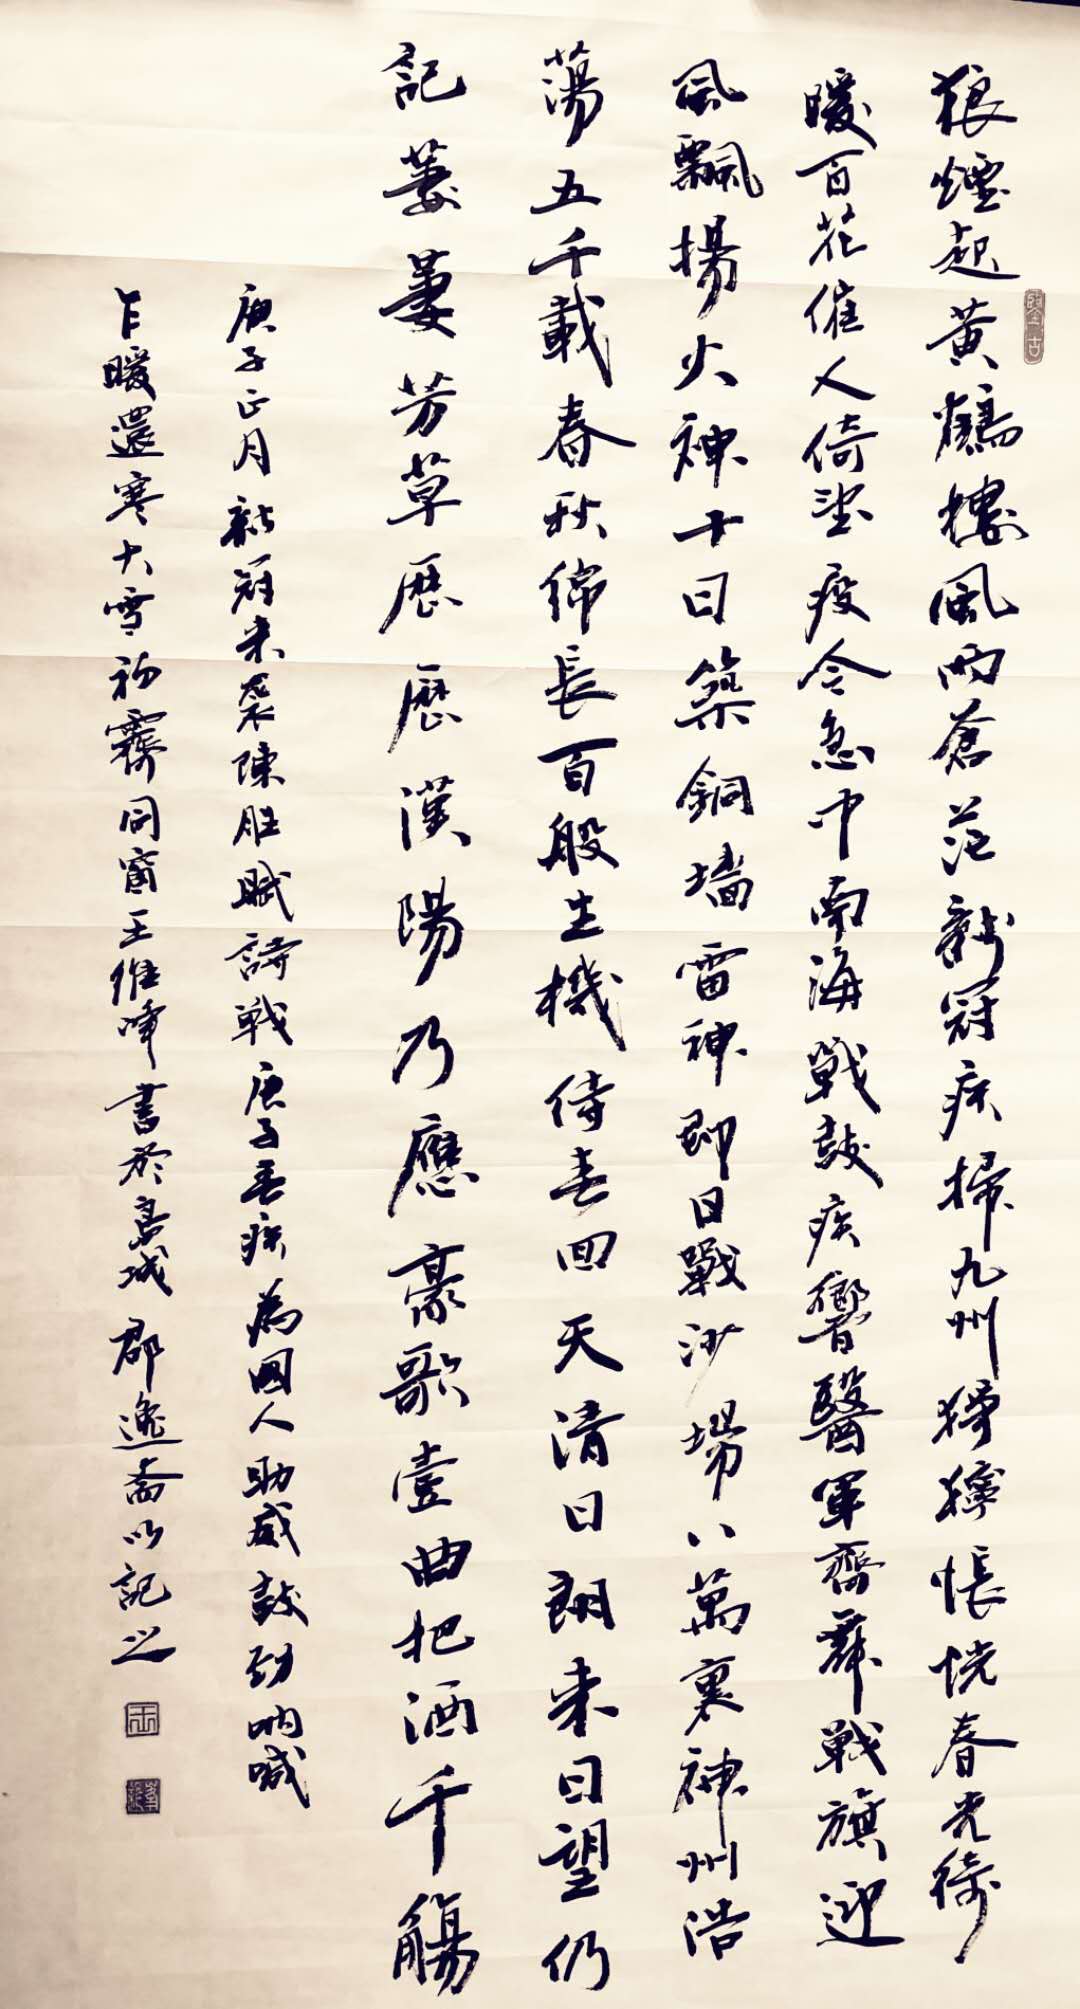 狼煙起黄鶴樓風雨蒼茫新冠疾掃九州獰獰悵恍春光待
暖百花催人倚望疫令急中南海戰鼓疾響醫軍齊舞戰旗迎
風飄揚火神十日築銅墙雷神即日戰沙場八萬裏神州浩
蕩五千載春秋綿長百般生機待春回天清日朗来日望仍
記萋萋芳草歷歷漢陽乃應豪歌壹曲把酒千觴
庚子正月新冠来袭陳胜賦詩戰庚子吾疾為國人助威鼓劲呐喊
乍暖還寒大雪初霽同窗王維峰書於島城郡逸斋以記之